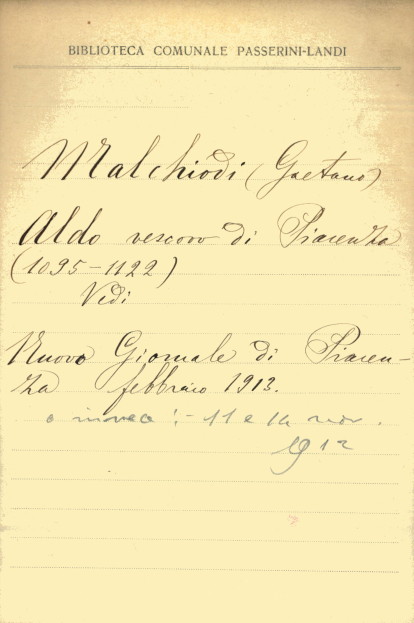 BIBLIOTECA COMUNALE PASSERINI-LANDI
Malchiodi (Gaetano)
Aldo vescovo di Piacenza
(1095-1122)
Vedi
Nuovo Giornale di Piacen-
za febbraio 1913.
o invece :- 11 e 12 nov.
1912